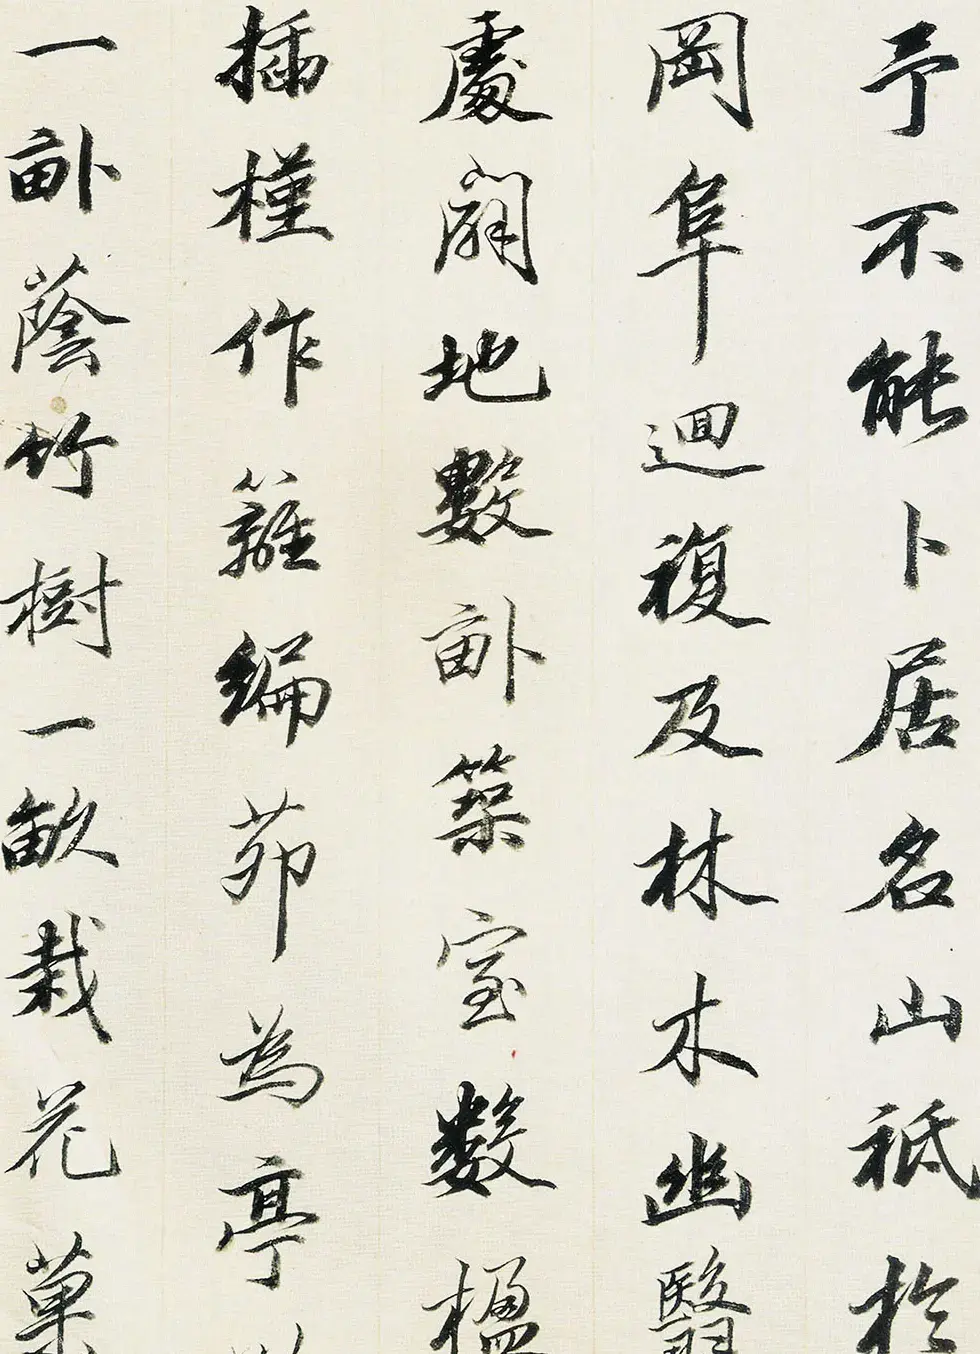 予不能卜居名山祗於
岡阜迴複及林木幽翳
處闢地數畝築室數楹
插槿作籬編茆為亭
一畝蔭竹樹一畝栽花菓